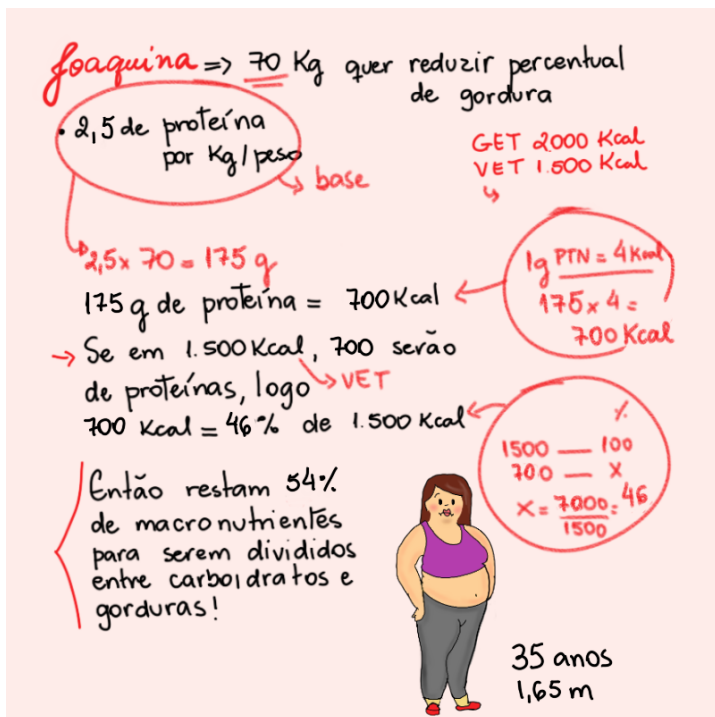 Joaquina => 70 Kg quer reduzir percentual
de gordura
• 2,5 de proteína
por Kg/peso
↳ base
GET 2000 Kcal
VET 1.500 Kcal
↳
2,5 x 70 = 175 g
175 g de proteína = 700 Kcal ←
1g PTN = 4 Kcal
175 x 4 =
700 Kcal
→ Se em 1.500 Kcal, 700 serão
de proteínas, logo
↳ VET
700 Kcal = 46% de 1.500 Kcal ←
%
1500 — 100
700 — x
x = 7000 = 46
1500
Então restam 54%
de macronutrientes
para serem divididos
entre carboidratos e
gorduras!
35 anos
1,65 m